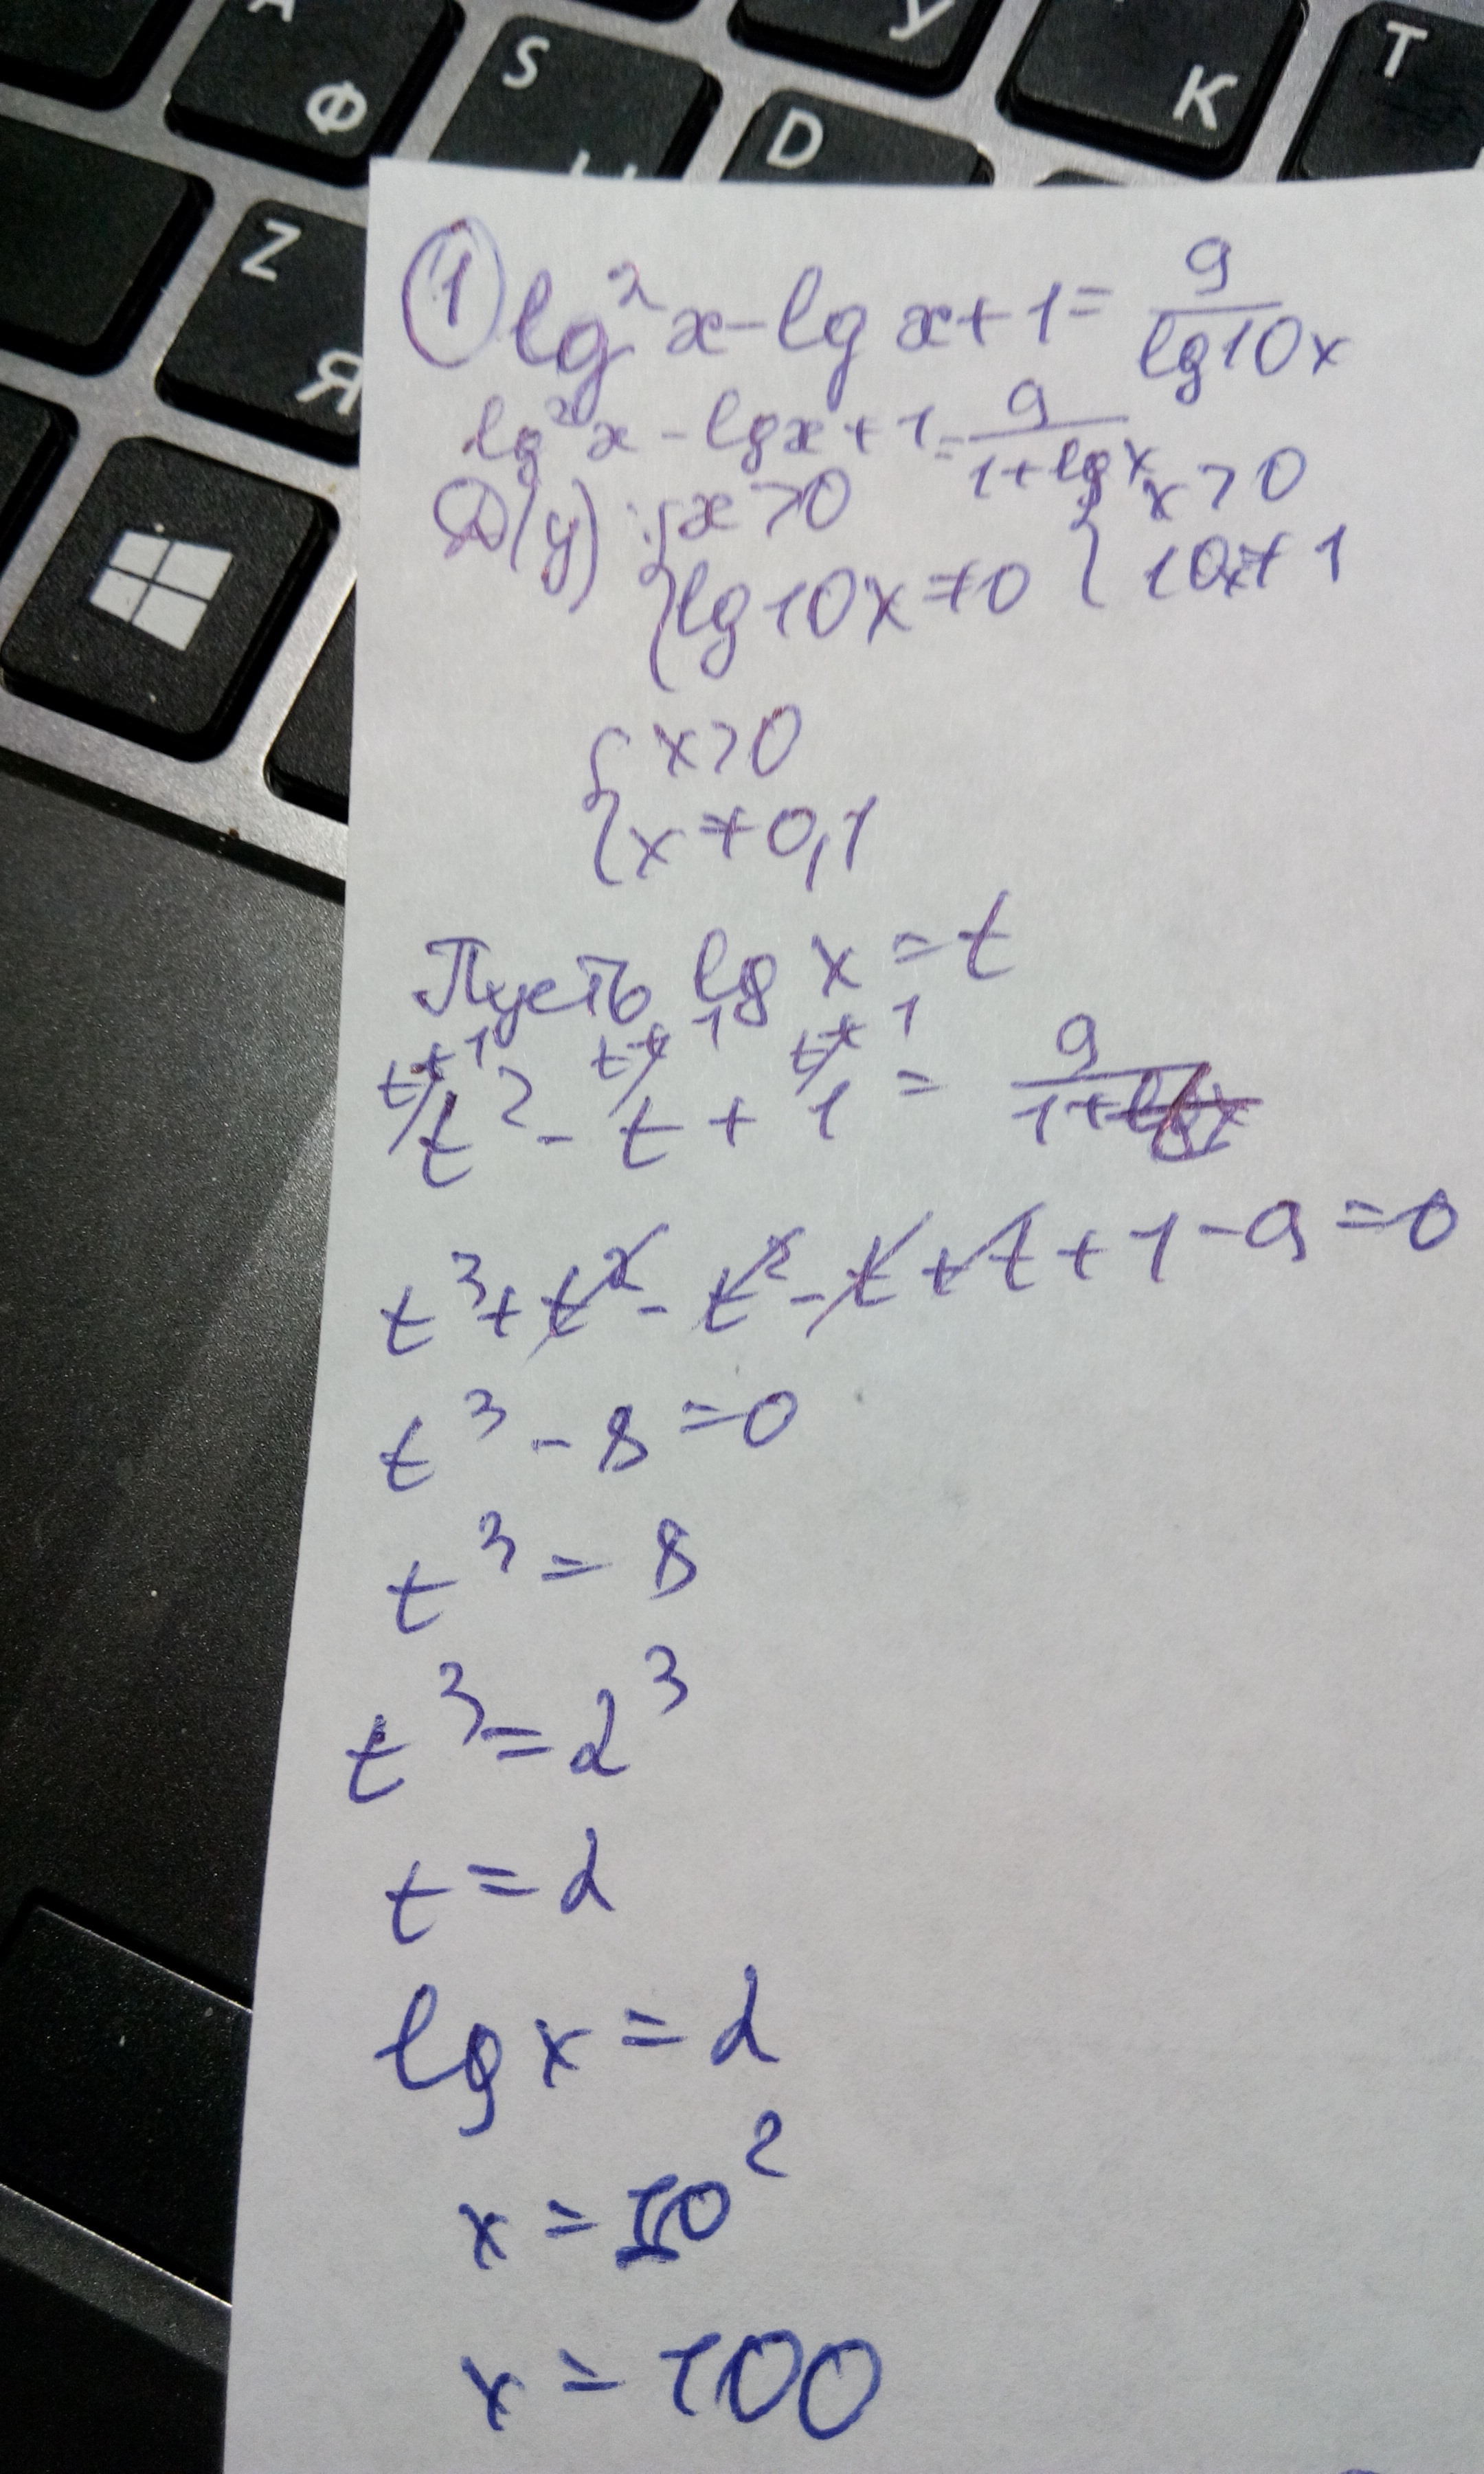 А Ф S Ы D У К Т
Z Я
① lg²x-lg x+1= 9/lg10x
lg²x-lgx+1= 9/1+lgx
D(y): { x>0 { x>0
lg10x≠0 10x≠1
{ x>0
x≠0,1
Пусть lg x = t
t+1 t+1 t+1
t² - t + 1 = 9/1+
t³+t²-t²-t+t+1-9=0
t³-8=0
t³=8
t³=2³
t=2
lg x=2
x=10²
x=100